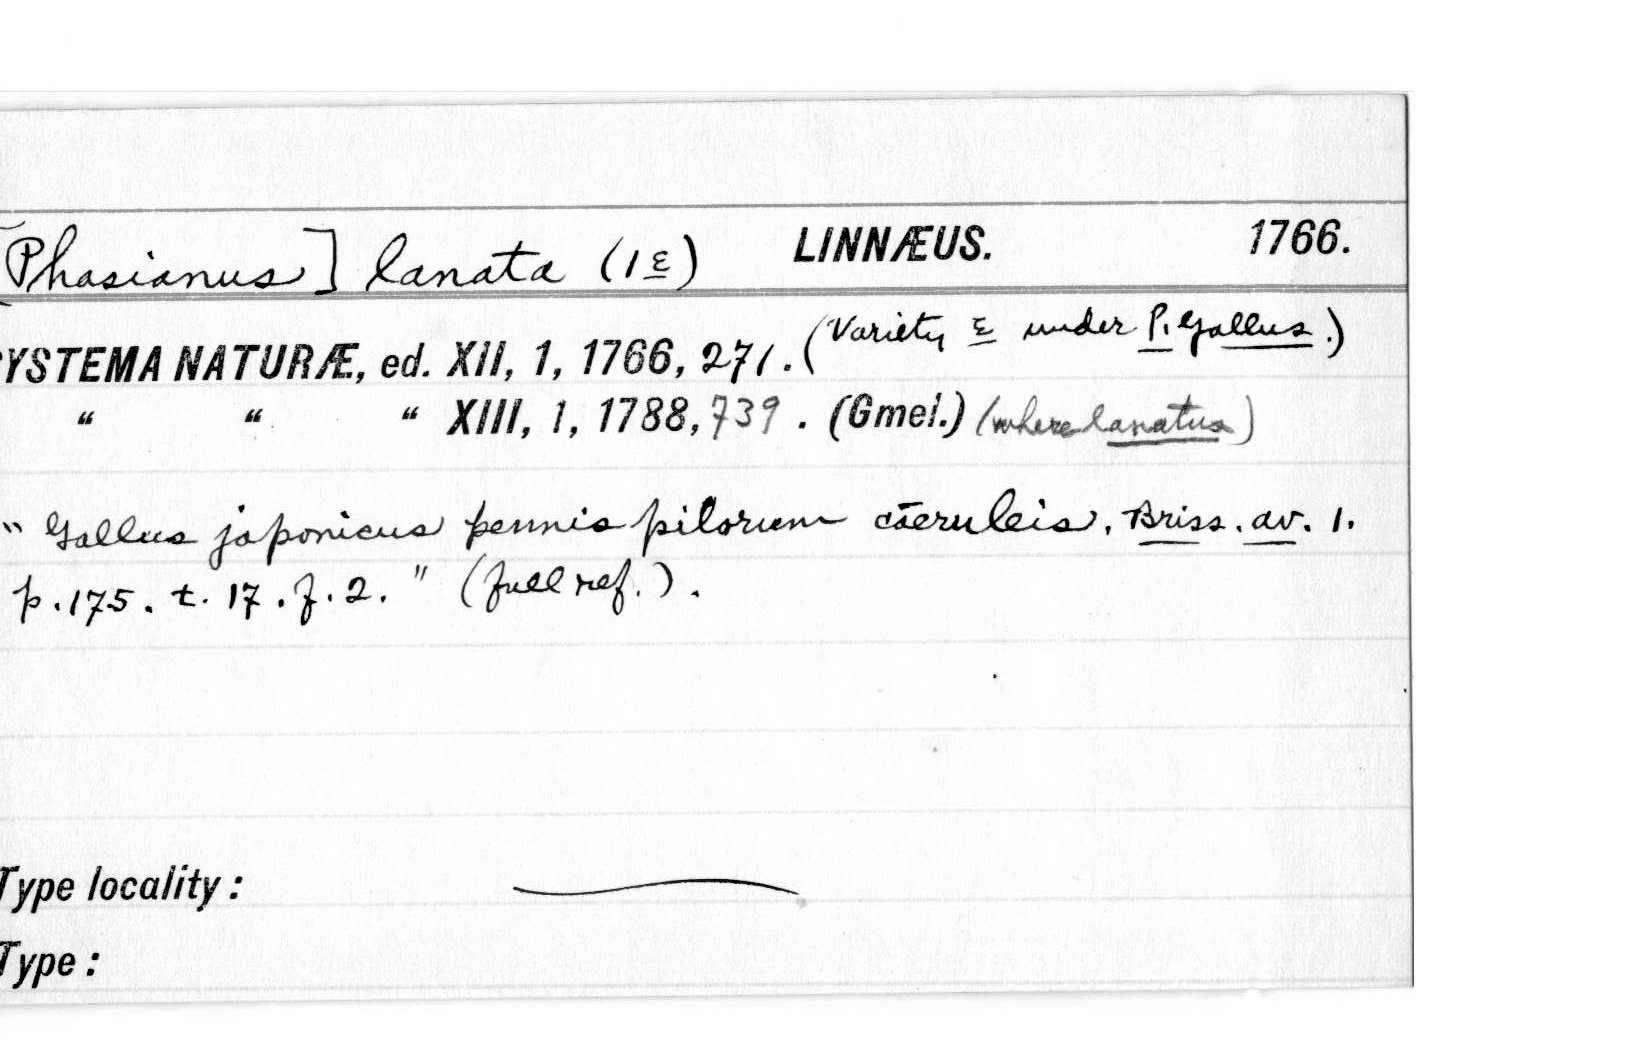 [Phasianus] lanata (1ε) LINNÆUS. 1766.
SYSTEMA NATURÆ, ed. XII, 1, 1766, 271. (Variety ε under P. Gallus.)
“ “ “ XIII, 1, 1788, 739. (Gmel.) (where lanatus)
“ Gallus japonicus pennis pilorum cœruleis. Briss. av. 1.
p. 175. t. 17. f. 2. ” (full ref.).
Type locality:
Type: